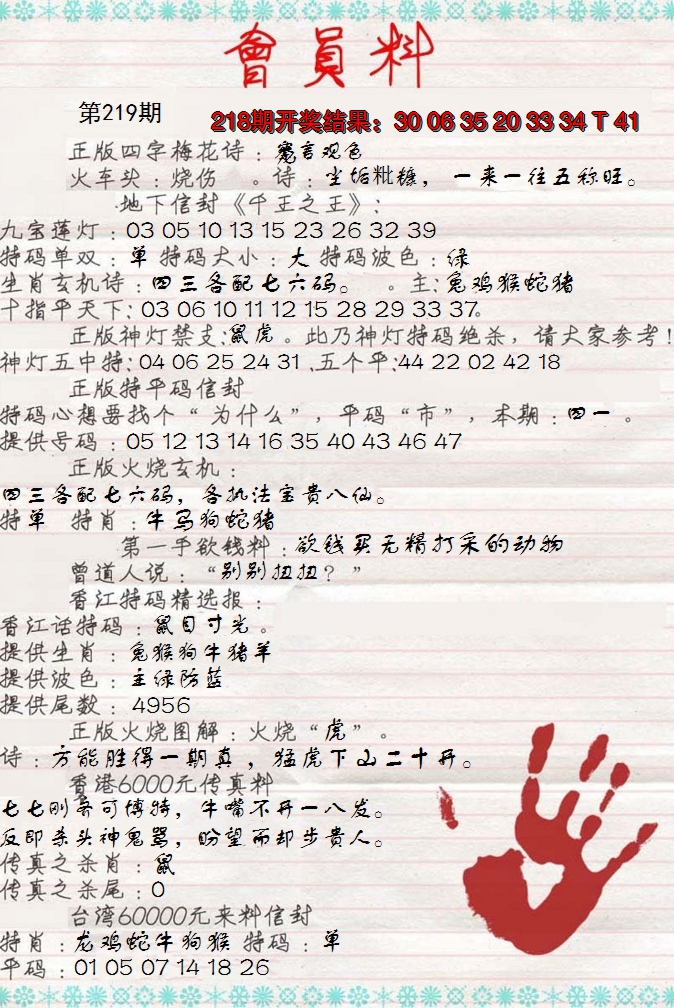 會員料
第219期
218期开奖结果：30 06 35 20 33 34 T 41
正版四字梅花诗：窥言观色
火车头：烧伤 。诗：尘垢粃糠，一来一往五称旺。
地下信封《千王之王》：
九宝莲灯：03 05 10 13 15 23 26 32 39
特码单双：单 特码大小：大 特码波色：绿
生肖玄机诗：四三各配七六码。 。主:兔鸡猴蛇猪
十指平天下:03 06 10 11 12 15 28 29 33 37。
正版神灯禁支:鼠虎。此乃神灯特码绝杀，请大家参考！
神灯五中特:04 06 25 24 31 .五个平:44 22 02 42 18
正版特平码信封
特码心想要找个“为什么”，平码“市”，本期：四一 。
提供号码：05 12 13 14 16 35 40 43 46 47
正版火烧玄机：
四三各配七六码，各执法宝贵八仙。
特单 特肖：牛马狗蛇猪
第一手欲钱料：欲钱买无精打采的动物
曾道人说：“别别扭扭？”
香江特码精选报：
香江话特码：鼠目寸光。
提供生肖：兔猴狗牛猪羊
提供波色：主绿防蓝
提供尾数：4956
正版火烧图解：火烧“虎”。
诗：方能胜得一期真，猛虎下山二十开。
香港6000元传真料
七七刚亥可博特，牛嘴不开一八发。
反即杀头神鬼骂，盼望而却步贵人。
传真之杀肖：鼠
传真之杀尾：0
台湾60000元来料信封
特肖：龙鸡蛇牛狗猴 特码：单
平码：01 05 07 14 18 26